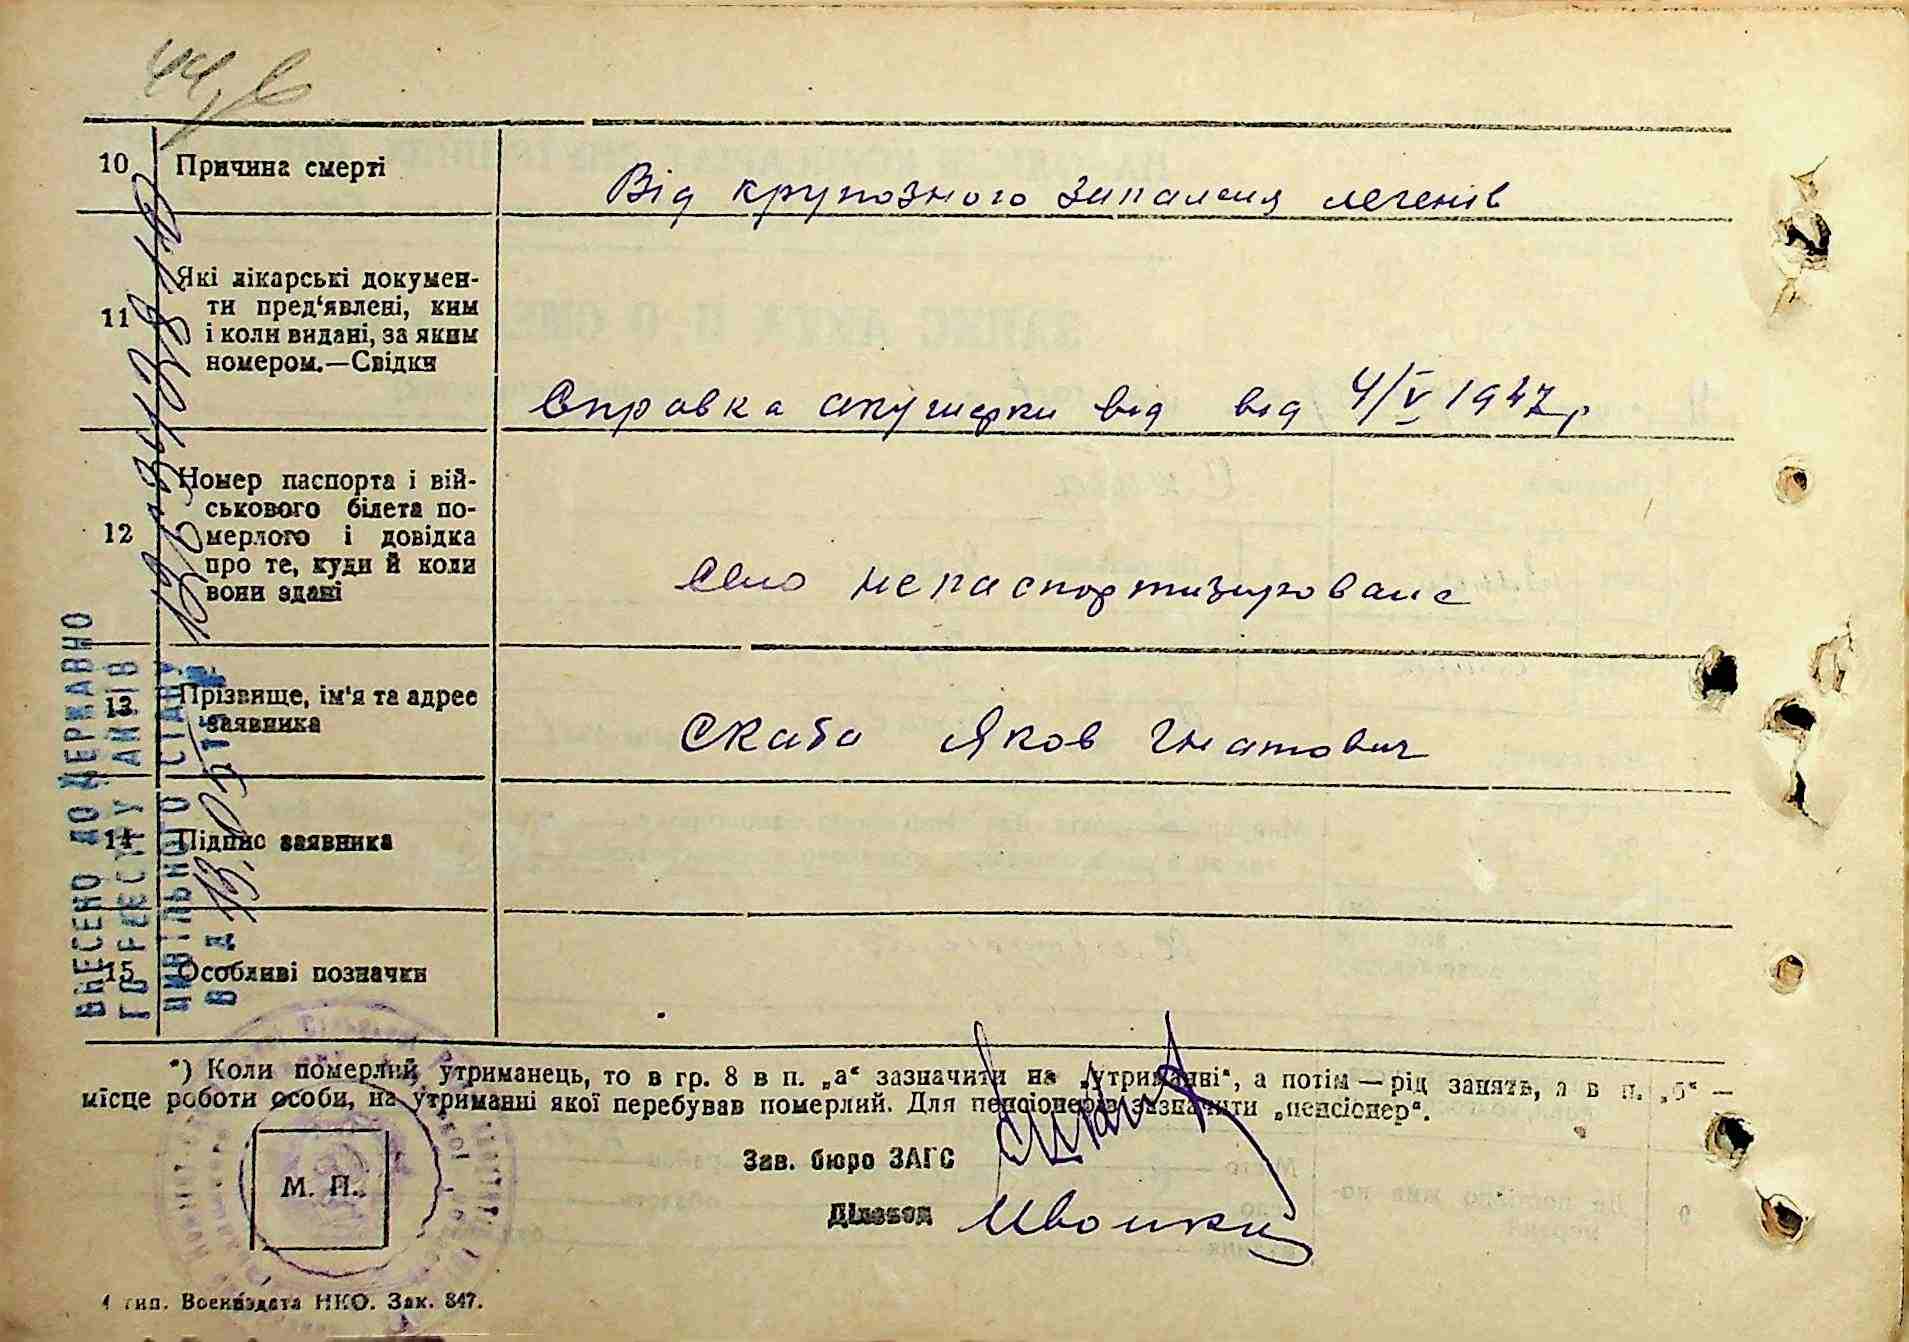 10 Причина смерті
Від крупозного запаленя легенів
11 Які лікарські докумен-
ти пред'явлені, ким
і коли видані, за яким
номером.—Свідки
Справка акушерки від від 4/V 1947 р
12 Номер паспорта і вій-
ськового білета по-
мерлого і довідка
про те, куди й коли
вони здані
Село непаспортизироване
13 Прізвище, ім'я та адрес
заявника
Скаба Яков Гнатович
14 Підпис заявника
15 Особливі позначки
ВНЕСЕНО ДО ДЕРЖАВНО
ГО РЕЄСТРУ АКТІВ
ЦИВІЛЬНОГО СТАНУ
*) Коли померлий утриманець, то в гр. 8 в п. „а“ зазначити на „утриманні“, а потім — рід занять, а в п. „б“ —
місце роботи особи, на утриманні якої перебував померлий. Для пенсіонерів зазначити „пенсіонер“.
Зав. бюро ЗАГС
Діловод
М. П.
4 тип. Воениздата НКО. Зак. 847.